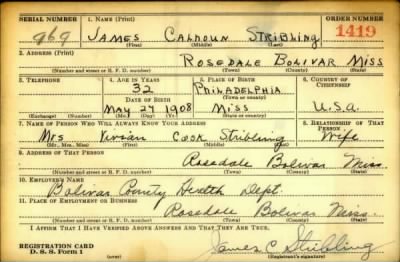 SERIAL NUMBER 1. NAME (Print) ORDER NUMBER
969 JAMES CALHOUN STRIBLING 1419
(First) (Middle) (Last)
2. ADDRESS (Print)
ROSEDALE BOLIVAR MISS
(Number and street or R. F. D. number) (Town) (County) (State)
3. TELEPHONE 4. AGE IN YEARS 5. PLACE OF BIRTH 6. COUNTRY OF CITIZENSHIP
32 PHILADELPHIA
DATE OF BIRTH (Town or county)
MAY 27 1908 MISS U.S.A.
(Exchange) (Number) (Mo.) (Day) (Yr.) (State or country)
7. NAME OF PERSON WHO WILL ALWAYS KNOW YOUR ADDRESS 8. RELATIONSHIP OF THAT PERSON
Mrs Vivian Cook Stribling Wife
(Mr., Mrs., Miss) (First) (Middle) (Last)
9. ADDRESS OF THAT PERSON
Rosedale Bolivar Miss.
(Number and street or R. F. D. number) (Town) (County) (State)
10. EMPLOYER'S NAME
Bolivar County Health Dept.
11. PLACE OF EMPLOYMENT OR BUSINESS
Rosedale Bolivar Miss.
(Number and street or R. F. D. number) (Town) (County) (State)
I AFFIRM THAT I HAVE VERIFIED ABOVE ANSWERS AND THAT THEY ARE TRUE.
REGISTRATION CARD James C Stribling
D. S. S. Form 1 (Registrant's signature)